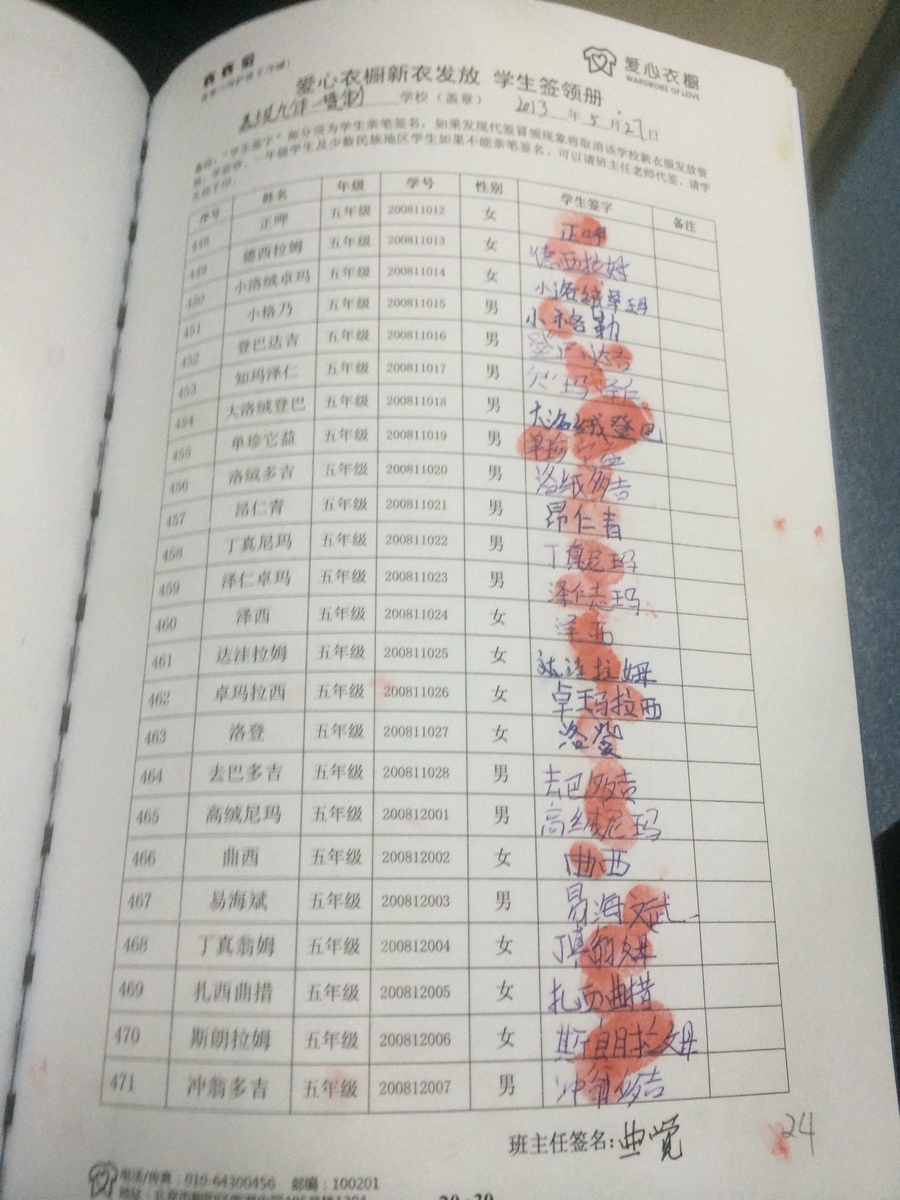 爱心衣橱
WARDROBE OF LOVE
爱心衣橱新衣发放 学生签领册
学校（盖章） 2013 年 5 月 27 日
备注："学生签字"部分须为学生亲笔签名，如果发现代签冒领现象将取消该学校新衣服发放资
格。学前班、一年级学生及少数民族地区学生如果不能亲笔签名，可以请班主任老师代签，请学
生按手印。
序号 姓名 年级 学号 性别 学生签字 备注
448 正呷 五年级 200811012 女 正呷
449 德西拉姆 五年级 200811013 女 德西拉姆
450 小洛绒卓玛 五年级 200811014 女 小洛绒卓玛
451 小格乃 五年级 200811015 男 小格勒
452 登巴达吉 五年级 200811016 男 登巴达吉
453 知玛泽仁 五年级 200811017 男 玛泽仁
454 大洛绒登巴 五年级 200811018 男 大洛绒登巴
455 单珍它益 五年级 200811019 男 单珍它益
456 洛绒多吉 五年级 200811020 男 洛绒多吉
457 昂仁青 五年级 200811021 男 昂仁青
458 丁真尼玛 五年级 200811022 男 丁真尼玛
459 泽仁卓玛 五年级 200811023 男 泽仁志玛
460 泽西 五年级 200811024 女 泽西
461 达洼拉姆 五年级 200811025 女 达洼拉姆
462 卓玛拉西 五年级 200811026 女 卓玛拉西
463 洛登 五年级 200811027 女 洛登
464 去巴多吉 五年级 200811028 男 去巴多吉
465 高绒尼玛 五年级 200812001 男 高绒尼玛
466 曲西 五年级 200812002 女 曲西
467 易海斌 五年级 200812003 男 易海斌
468 丁真翁姆 五年级 200812004 女 丁真翁姆
469 扎西曲措 五年级 200812005 女 扎西曲措
470 斯朗拉姆 五年级 200812006 女 斯朗拉姆
471 冲翁多吉 五年级 200812007 男 冲翁多吉
班主任签名:曲觉
24
电话/传真：010-64300456 邮编：100201